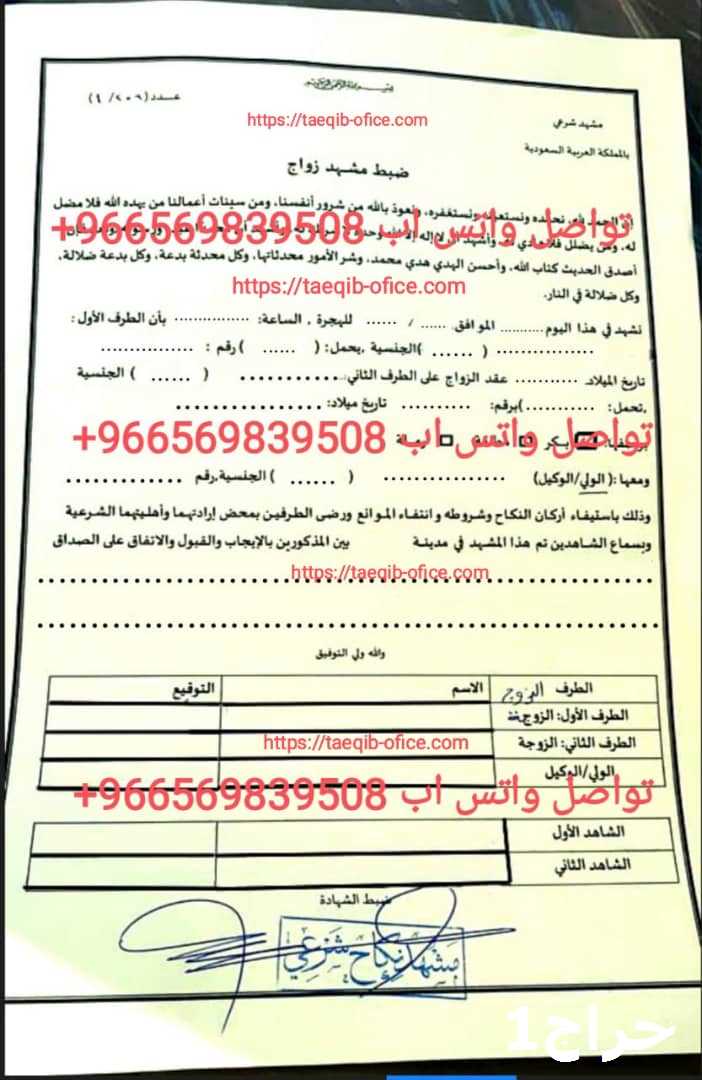 بسم الله الرحمن الرحيم
عـدد (٢٠٦/ ٤)
مشهد شرعي
https://taeqib-ofice.com
بالمملكة العربية السعودية
ضبط مشهد زواج
إن الحمد لله، نحمده ونستعينه ونستغفره، ونعوذ بالله من شرور أنفسنا، ومن سيئات أعمالنا من يهده الله فلا مضل
تواصل واتس اب 966569839508+
له، ومن يضلل فلا هادي له، وأشهد أن لا إله إلا الله وحده لا شريك له
أصدق الحديث كتاب الله، وأحسن الهدي هدي محمد، وشر الأمور محدثاتها، وكل محدثة بدعة، وكل بدعة ضلالة،
https://taeqib-ofice.com
وكل ضلالة في النار.
نشهد في هذا اليوم ........... الموافق ...... / ...... للهجرة . الساعة: ................ بأن الطرف الأول:
.................... ( ...... )الجنسية ,يحمل: ( ...... ) رقم : ...................
تاريخ الميلاد ............ عقد الزواج على الطرف الثاني: ............ ( ...... ) الجنسية
,تحمل: (...........)برقم: ............ تاريخ ميلاد: ......................
تواصل واتس اب 966569839508+
بكر
ومعها :( الولي/الوكيل) .................... ( ...... ) الجنسية,رقم ................
وذلك باستيفاء أركان النكاح وشروطه و انتفاء الموانع ورضى الطرفين بمحض إرادتهما وأهليتهما الشرعية
وبسماع الشاهدين تم هذا المشهد في مدينة بين المذكورين بالإيجاب والقبول والاتفاق على الصداق
https://taeqib-ofice.com
والله ولي التوفيق
الطرف الزوج الاسم التوقيع
الطرف الأول: الزوج
الطرف الثاني: الزوجة
https://taeqib-ofice.com
الولي/الوكيل
تواصل واتس اب 966569839508+
الشاهد الأول
الشاهد الثاني
ضبط الشهادة
مشهد نكاح شرعي
حراج1